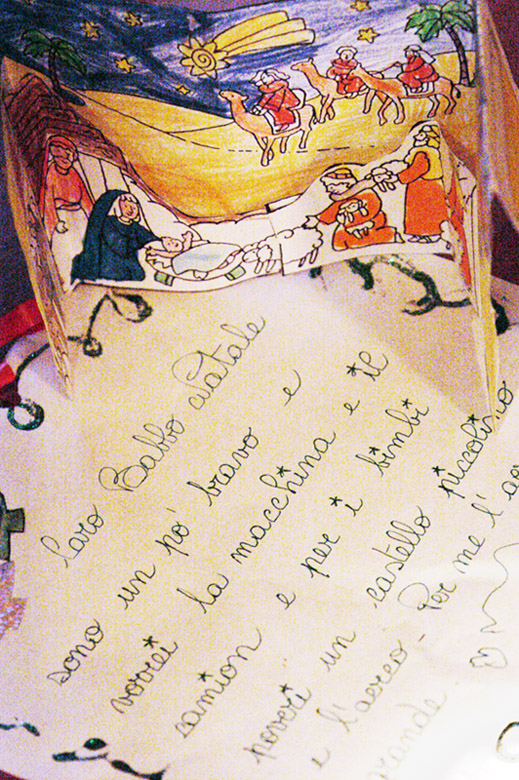 Caro Babbo Natale
sono un pó bravo e
vorrei la macchina e il
camion e per i bimbi
poveri un castello piccolino
e l'aereo - Per me l'ae
grande